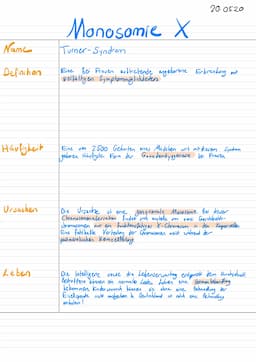 20.05.20
Monosomie X
Name
Turner-Syndrom
Definition
Eine bei Frauen auftretende angeborene Erkrankung mit
vielfältigen Symptommöglichkeiten
Häufigkeit
Eine von 2500 Geburten eines Mädchen mit diesem Syndrom
geboren häufigste Form der Gonadendysgenesie bei Frauen
Ursachen
Die Ursache ist eine gonosomale Monosomie. Bei dieser
Chromosomenaberration findet sich anstelle von zwei Geschlechts-
chromosomen nur ein funktionsfähiges X-Chromosom in den Körperzellen
Eine fehlerhafte Verteilung der Chromosomen während der
Leben
Die Intelligenz sowie die Lebenserwartung entspricht dem Durchschnitt
Betroffene können ein normales Leben führen eine
bekommen Kinderwunsch können sie eine Behandlung der
Eizellspende in Deutschland ist eine Behandlung